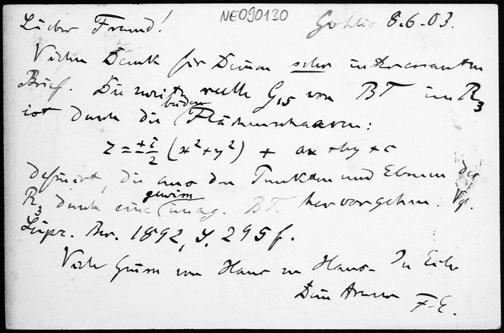 NE090130
Lieber Freund! Gohlis 8.6.03.
Vielen Dank für Deinen sehr interessanten
Brief. Die zweite reelle G₁₅ von BT im R₃
ist durch die beiden Flächenschaaren:
z = ±i/2 (x²+y²) + ax + by + c
definiert, die aus den Punkten und Ebenen des
R₃ durch eine gewisse imag. BT. hervorgehen. Vgl.
Leipz. Ber. 1892, S. 295 f.
Viele Grüsse von Haus zu Haus. In Eile
Dein
F. E.